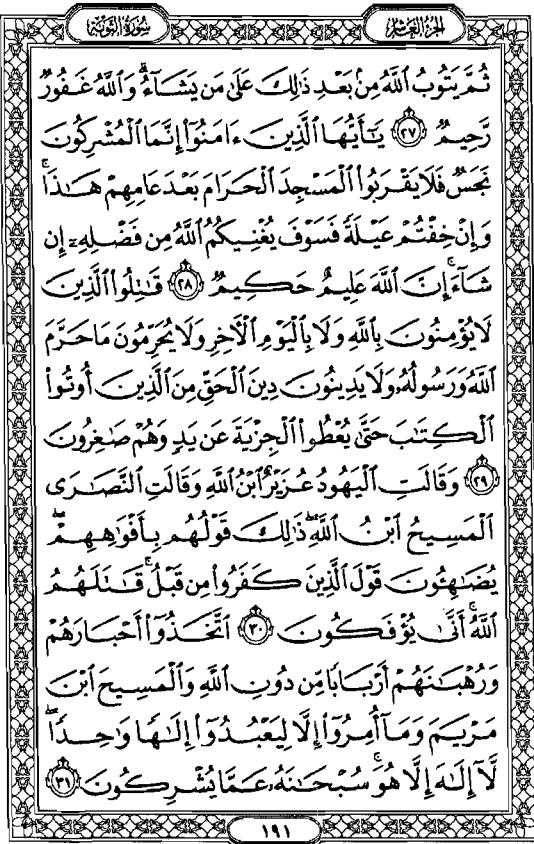 سُورَةُ التَّوْبَةِ
الجُزْءُ العَاشِرُ
ثُمَّ يَتُوبُ ٱللَّهُ مِنۢ بَعْدِ ذَٰلِكَ عَلَىٰ مَن يَشَآءُۗ وَٱللَّهُ غَفُورٌ
رَّحِيمٌ ﴿٢٧﴾ يَٰٓأَيُّهَا ٱلَّذِينَ ءَامَنُوٓا۟ إِنَّمَا ٱلْمُشْرِكُونَ
نَجَسٌ فَلَا يَقْرَبُوا۟ ٱلْمَسْجِدَ ٱلْحَرَامَ بَعْدَ عَامِهِمْ هَٰذَاۚ
وَإِنْ خِفْتُمْ عَيْلَةً فَسَوْفَ يُغْنِيكُمُ ٱللَّهُ مِن فَضْلِهِۦٓ إِن
شَآءَۚ إِنَّ ٱللَّهَ عَلِيمٌ حَكِيمٌ ﴿٢٨﴾ قَٰتِلُوا۟ ٱلَّذِينَ
لَا يُؤْمِنُونَ بِٱللَّهِ وَلَا بِٱلْيَوْمِ ٱلْءَاخِرِ وَلَا يُحَرِّمُونَ مَا حَرَّمَ
ٱللَّهُ وَرَسُولُهُۥ وَلَا يَدِينُونَ دِينَ ٱلْحَقِّ مِنَ ٱلَّذِينَ أُوتُوا۟
ٱلْكِتَٰبَ حَتَّىٰ يُعْطُوا۟ ٱلْجِزْيَةَ عَن يَدٍ وَهُمْ صَٰغِرُونَ
﴿٢٩﴾ وَقَالَتِ ٱلْيَهُودُ عُزَيْرٌ ٱبْنُ ٱللَّهِ وَقَالَتِ ٱلنَّصَٰرَى
ٱلْمَسِيحُ ٱبْنُ ٱللَّهِۖ ذَٰلِكَ قَوْلُهُم بِأَفْوَٰهِهِمْۖ
يُضَٰهِـُٔونَ قَوْلَ ٱلَّذِينَ كَفَرُوا۟ مِن قَبْلُۚ قَٰتَلَهُمُ
ٱللَّهُۚ أَنَّىٰ يُؤْفَكُونَ ﴿٣٠﴾ ٱتَّخَذُوٓا۟ أَحْبَارَهُمْ
وَرُهْبَٰنَهُمْ أَرْبَابًا مِّن دُونِ ٱللَّهِ وَٱلْمَسِيحَ ٱبْنَ
مَرْيَمَ وَمَآ أُمِرُوٓا۟ إِلَّا لِيَعْبُدُوٓا۟ إِلَٰهًا وَٰحِدًاۖ
لَّآ إِلَٰهَ إِلَّا هُوَۚ سُبْحَٰنَهُۥ عَمَّا يُشْرِكُونَ ﴿٣١﴾
١٩١